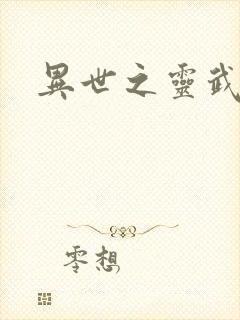 異世之靈武
零想